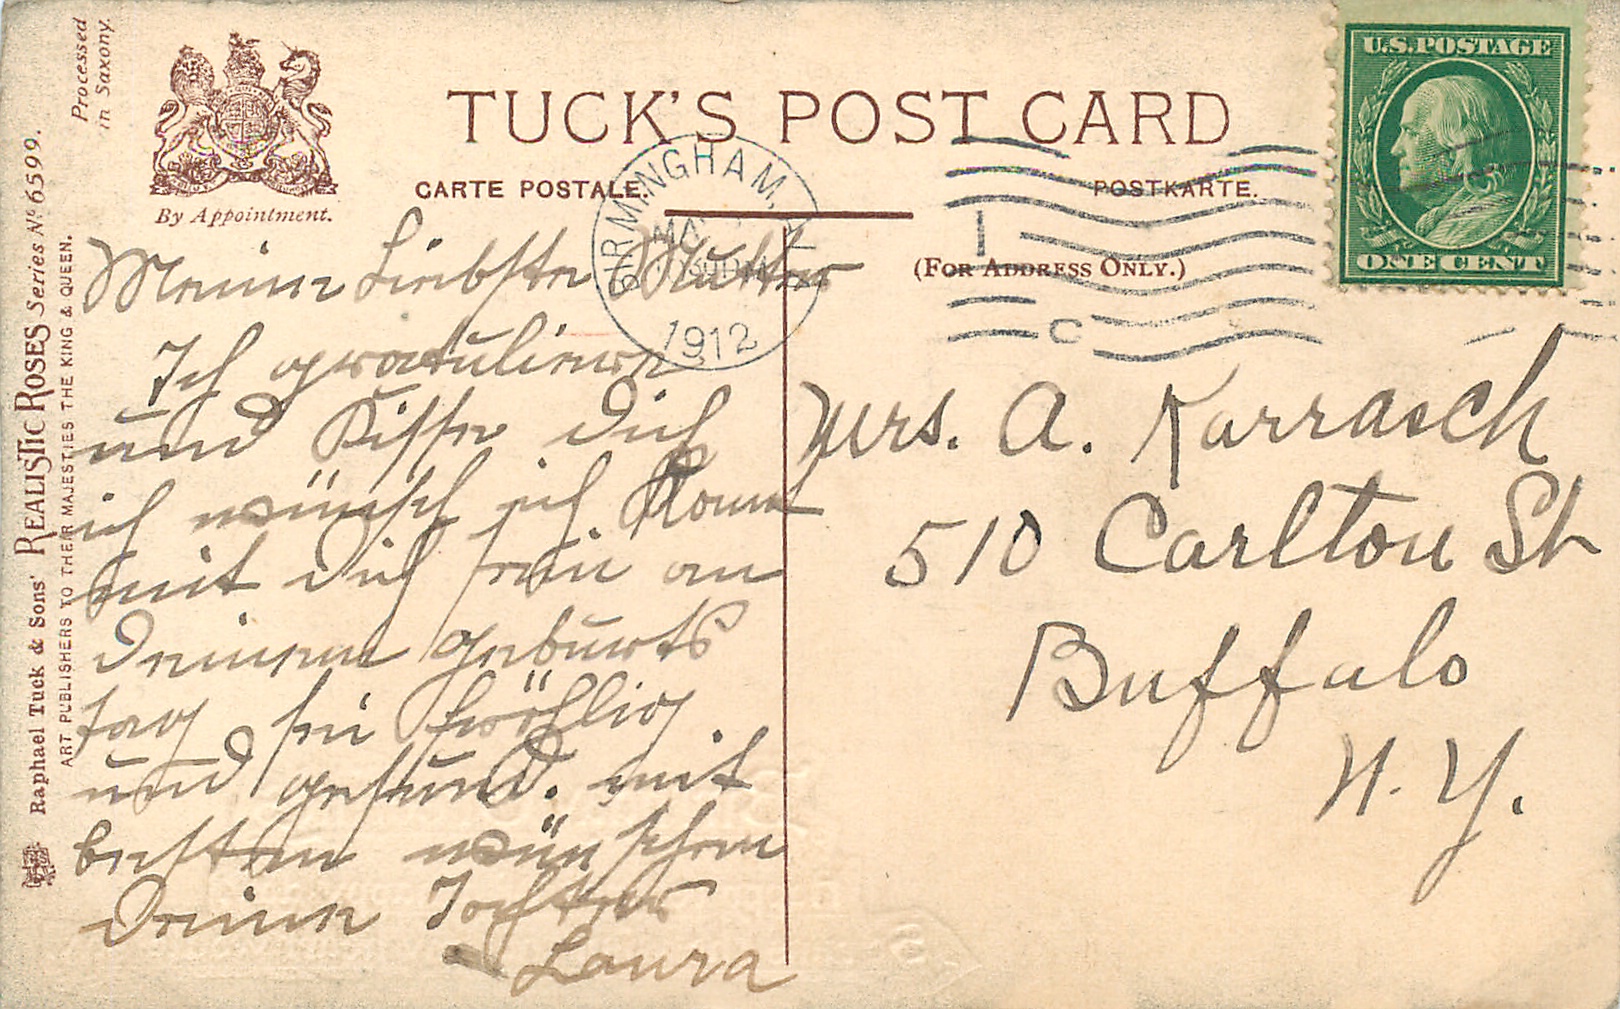 Processed
in Saxony.
Raphael Tuck & Sons' REALISTIC ROSES Series No 6599.
ART PUBLISHERS TO THEIR MAJESTIES THE KING & QUEEN.
By Appointment.
TUCK'S POST CARD
CARTE POSTALE.
POSTKARTE.
(FOR ADDRESS ONLY.)
BIRMINGHAM, AL
1912
1
C
U.S.POSTAGE
ONE CENT
Meine Liebste Mutter
Ich gratuliere
und Kisse Dich
ich wünsch ich konnt
mit Dich sein an
Deinem geburts
tag sei fröhlig
und gesund. mit
besten wünschen
Deine Tochter
Laura
Mrs. A. Karrasch
510 Carlton St
Buffalo
N. Y.